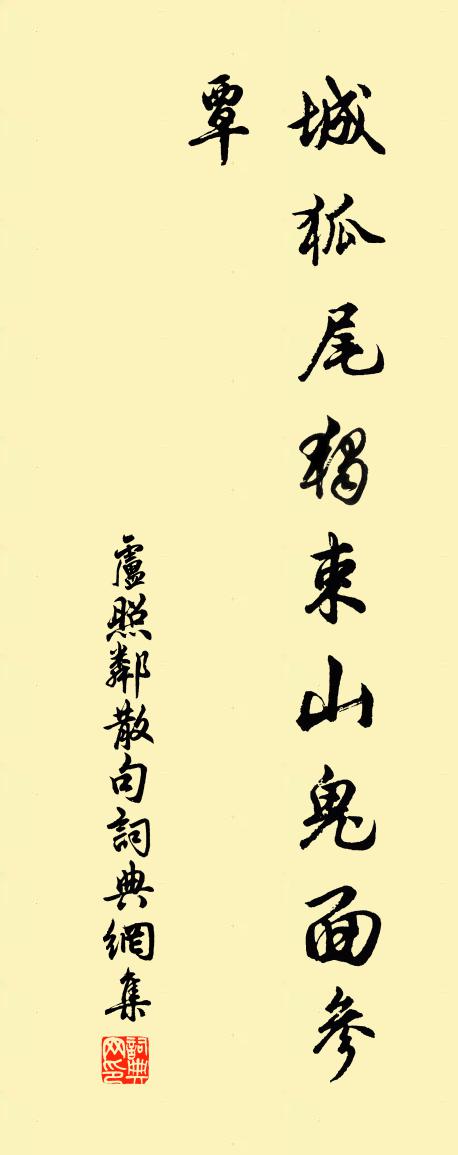 城狐尾獨束山鬼面參
覃
盧照鄰散句詞典網集
詞典网印